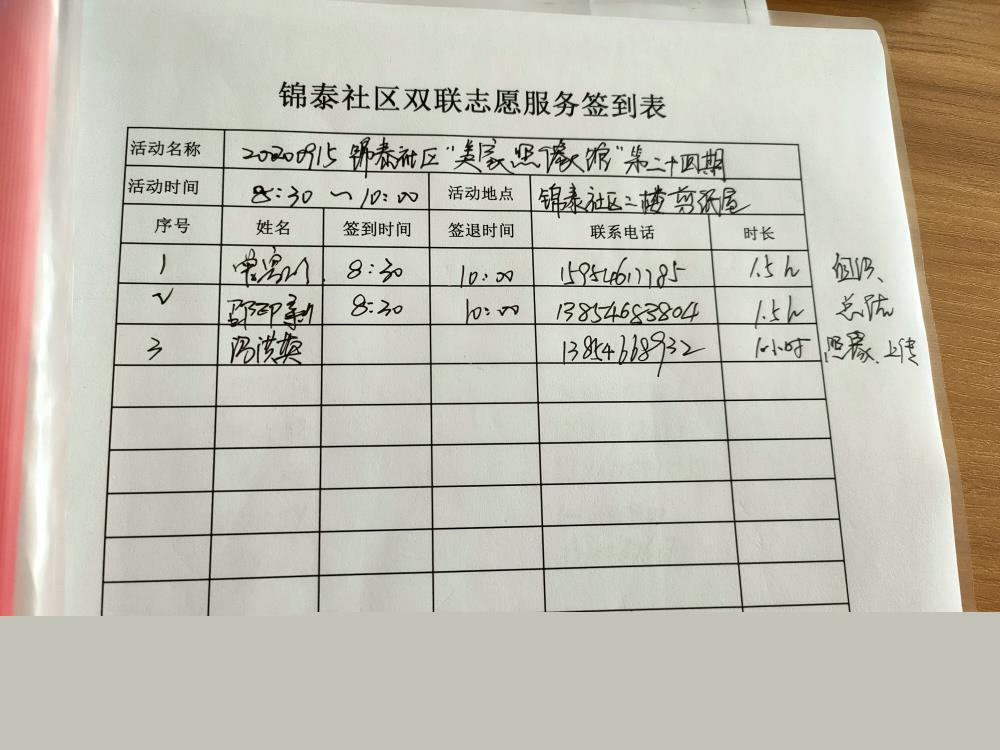 锦泰社区双联志愿服务签到表
活动名称 20200915 锦泰社区"美家照像大馆"第二十四期
活动时间 8:30 ～ 10:00 活动地点 锦泰社区二楼剪纸屋
序号 姓名 签到时间 签退时间 联系电话 时长
1 8:30 10:00 15954611785 1.5h 组织、
2 8:30 10:00 13854683804 1.5h 总结
3 冯洪英 13854668932 1小时 照象、上传